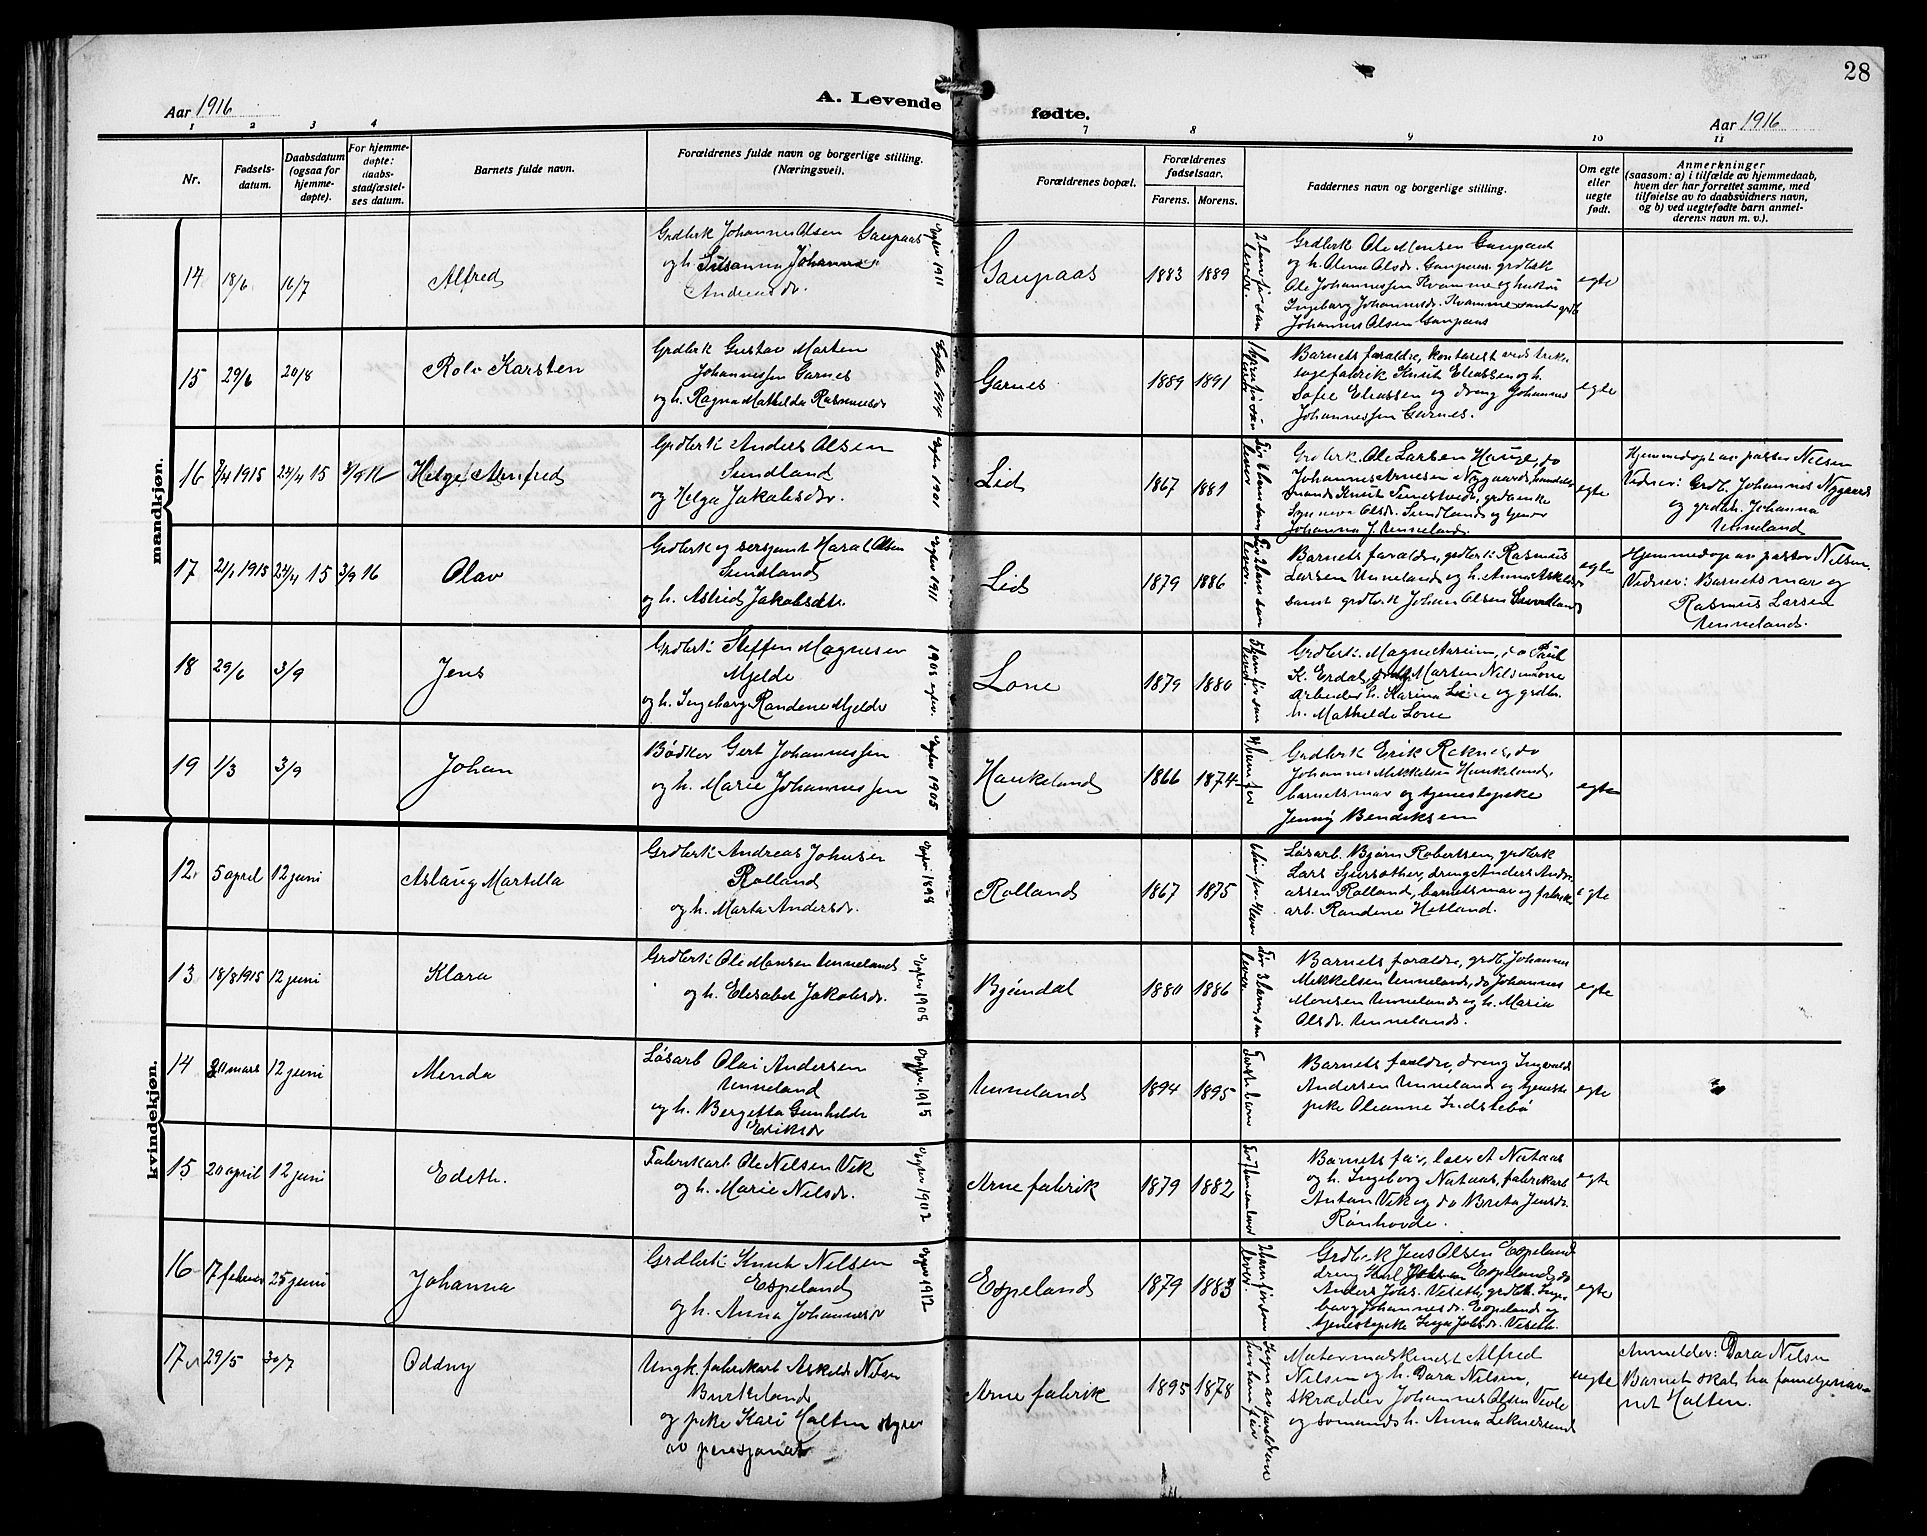 28
Aar 1916
A. Levende
fødte.
Aar 1916
1 2 3 4 7 8 9 10 11
Nr.
Fødsels-
datum.
Daabsdatum
(ogsaa for
hjemme-
døpte).
For hjemme-
døpte:
daabs-
stadfæstel-
ses datum.
Barnets fulde navn.
Forældrenes fulde navn og borgerlige stilling.
(Næringsvei).
Forældrenes bopæl.
Forældrenes
fødselsaar.
Farens. Morens.
Faddernes navn og borgerlige stilling.
Om egte
eller
uegte
født.
Anmerkninger
(saasom: a) i tilfælde av hjemmedaab,
hvem der har forrettet samme, med
tilføielse av to daabsvidners navn,
og b) ved uegtefødte barn anmel-
derens navn m. v.).
mandkjøn.
14 18/6 16/7 Alfred
Grdbrk Johannes Olsen Gaupaas
og h. Susanna Johanna
Andreasdr.
1911
Gaupaas 1883 1889
Grdbrk Ole Monsen Gaupaas
og h. Alma Olsdr. Gaupaas, grdbrk
Ole Johannessen Kvamme og hustru
Ingeborg Johannesdr. Kvamme samt grdb
Johannes Olsen Gaupaas
egte
15 29/6 20/8 Rolv Karsten
Grdbrk Gustav Marten
Johannessen Garnes
og h. Ragna Mathilde Rasmusdr
1914
Garnes 1889 1891
Barnets forældre, kontorist ved triko
tagefabrik Knut Eliassen og h.
Sofie Eliassen og dreng Johannes
Johannessen Garnes.
egte
16 7/4 1915 24/4 15 3/9 16 Helge Arnfred
Grdbrk Anders Olsen
Sundland
og Helga Jakobsdr.
1901
Lid 1867 1881
Grdbrk. Ole Larsen Hauge, do
Johannes Arnesen Nygaard,
Knut Tunestveit, grdenke
Synneva Olsdr. Sundland og tjener
Johanna J. Unneland.
egte
Hjemmedøpt av pastor Nilsen
Vidner: Grdb. Johannes Nygaard
og grdbh. Johanna
Unneland
17 21/1 1915 24/4 15 3/9 16 Olav
Grdbrk og sersjant Haral Olsen
Sundland
og h. Astrid Jakobsdtr.
1911
Lid 1879 1886
Barnets forældre, grdbrk Rasmus
Larsen Unneland og h. Anna Askelsdr
samt grdbrk Johan Olsen Sundland
egte
Hjemmedøp av pastor Nilsen.
Vidner: Barnets mor og
Rasmus Larsen
Unneland.
18 29/6 3/9 Jens
Grdbrk Steffen Magnesen
Mjelde
og h. Ingeborg Randene Mjelde
1905
Lone 1879 1880
Grdbrk. Magne Areim, do Paul
K. Erdal, Marten Nilsen Lone
arbeider h. Karina Lone og grdbr.
h. Mathilde Lone
19 1/3 3/9 Johan
Bødker Gert Johannessen
og h. Marie Johannessen
1905
Haukeland 1866 1874
Grdbrk Erik Reknes, do
Johannes Mikkelsen Haukeland,
barnets mor og tjenestepike
Jenny Bendiksen
egte
kvindekjøn.
12 5 april 12 juni Aslaug Martella
Grdbrk Andreas Johnsen
Rolland
og h. Marta Andersdr.
1898
Rolland 1867 1875
Løsarb. Bjørn Robertsen, grdbrk
Lars Sjursæther, dreng Anders Andre
assen Rolland, barnets mor og fabrik
arb. Randene Hetland.
egte
13 18/8 1915 12 juni Klara
Grdbrk Ole Monsen Unneland
og h. Elisabet Jakobsdr.
1908
Bjøndal 1880 1886
Barnets forældre, grdb. Johannes
Mikkelsen Unneland, do Johannes
Monsen Unneland og h. Maria
Olsdr. Unneland.
egte
14 20 mars 12 juni Menda
Løsarb Olai Andersen
Unneland
og h. Bergitta Gunhilde
Eriksdr
1915
Unneland 1894 1895
Første barn
Barnets forældre, dreng Ingvald
Andersen Unneland og tjeneste
pike Oleanne Indstebø
egte
15 20 april 12 juni Edith.
Fabrikarb Ole Nilsen Vik
og h. Marie Nilsdr.
1902
Arne fabrik 1879 1882
Barnets far, lærer A Nataas
og h. Ingeborg Nataas, fabrikarb
Anton Vik og do Brita Jensdr.
Rønhovde.
egte
16 17 februar 25 juni Johanna
Grdbrk Knut Nilsen
Espeland
og h. Anna Johannesdr
1912
Espeland 1879 1883
Grdbrk Jens Olsen Espeland
dreng Karl Johan Espeland, do
Anders Johs. Veseth, grdbrk. Inge-
borg Johannesdr. Espeland og
tjenestepike Inga Johsdr. Veseth.
egte
17 29/5 30/7 Oddny
Ungk. fabrikarb Askild Nilsen
Birkeland
og pike Kari Holten styrer
av pensjonat
Arne fabrik 1895 1878
Ingen av forældrene
har barn før
Matermaskinist Alfred
Nilsen og h. Dora Nilsen,
skrædder Johannes Olsen Vevle
og sømands h. Anna Liknessund
uegte
Anmelder: Dora Nilsen
Barnet skal ha familienav-
net Holten.